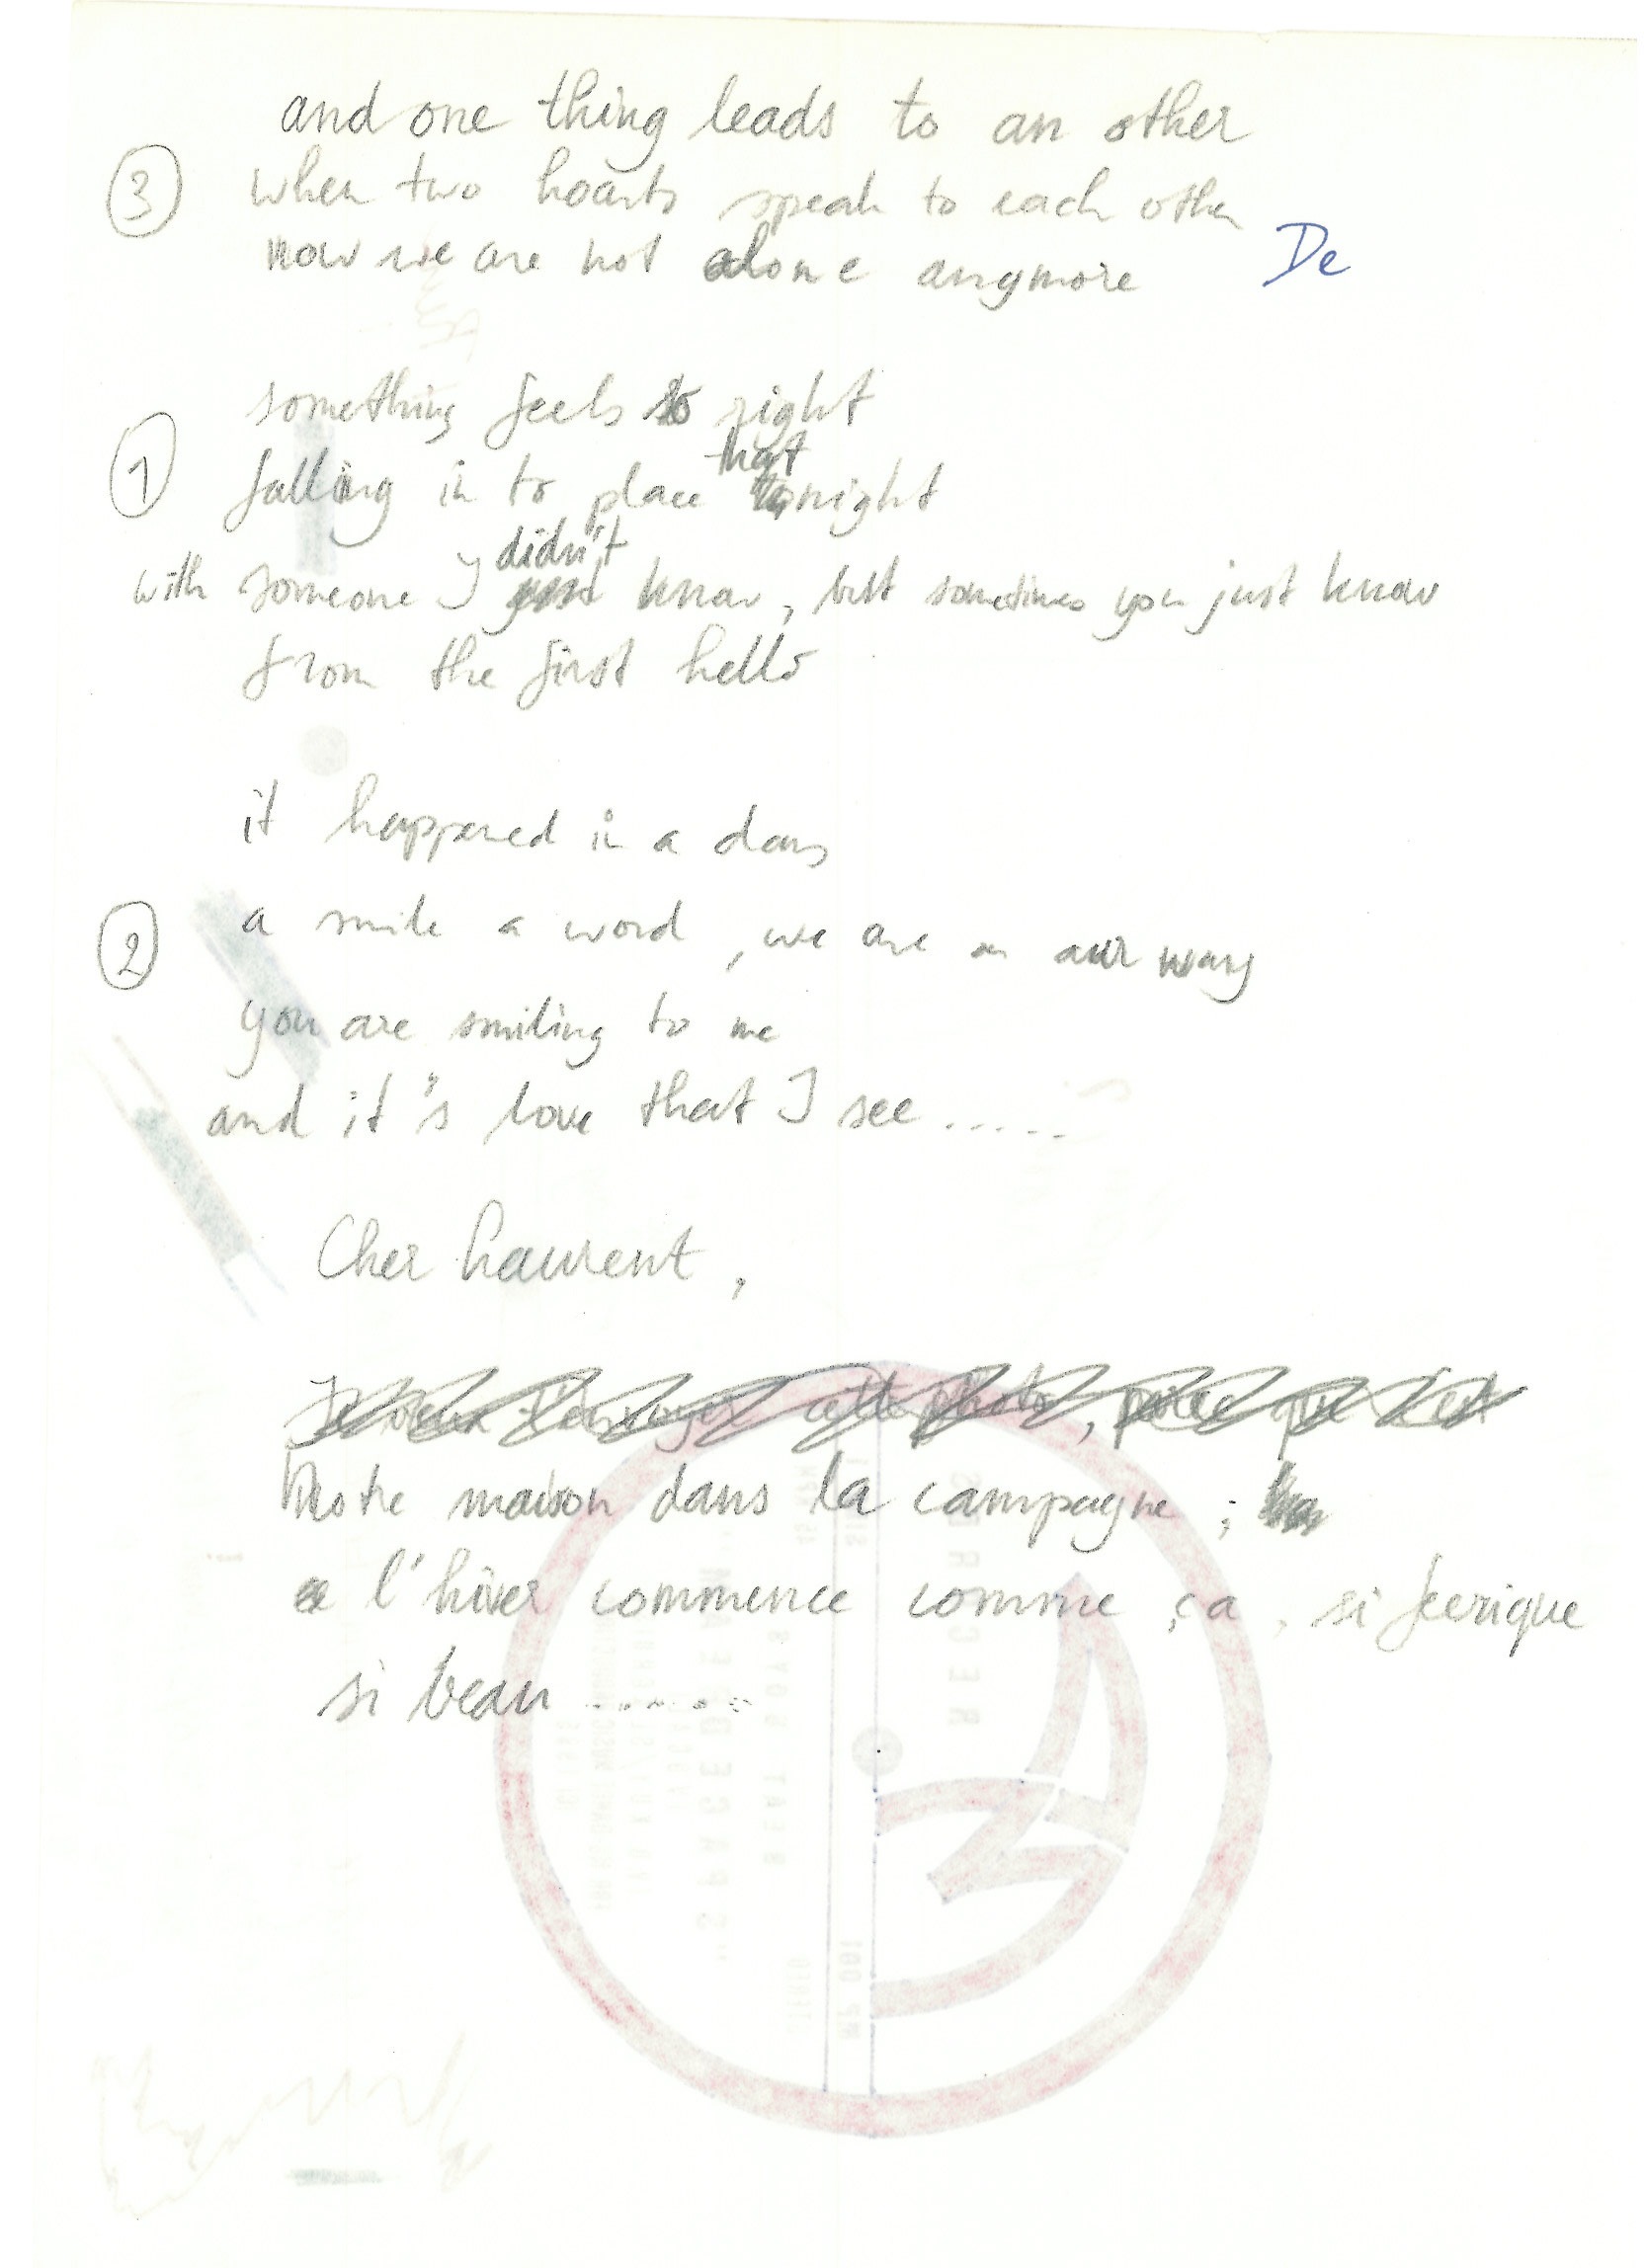 and one thing leads to an other
③ when two hearts speak to each other
now we are not alone anymore De
something feels so right
① falling in to place that night
with someone I didn't know, but sometimes you just know
from the first hello
it happened in a day
② a smile a word, we are on our way
you are smiling to me
and it's love that I see .....
Cher Laurent,
Je veux t'envoyer cette photo, parce que c'est
Notre maison dans la campagne ;
l'hiver commence comme ça, si feerique
si beau ......
RECORDS
"SPACE DREAM"
STEREO
MP 001